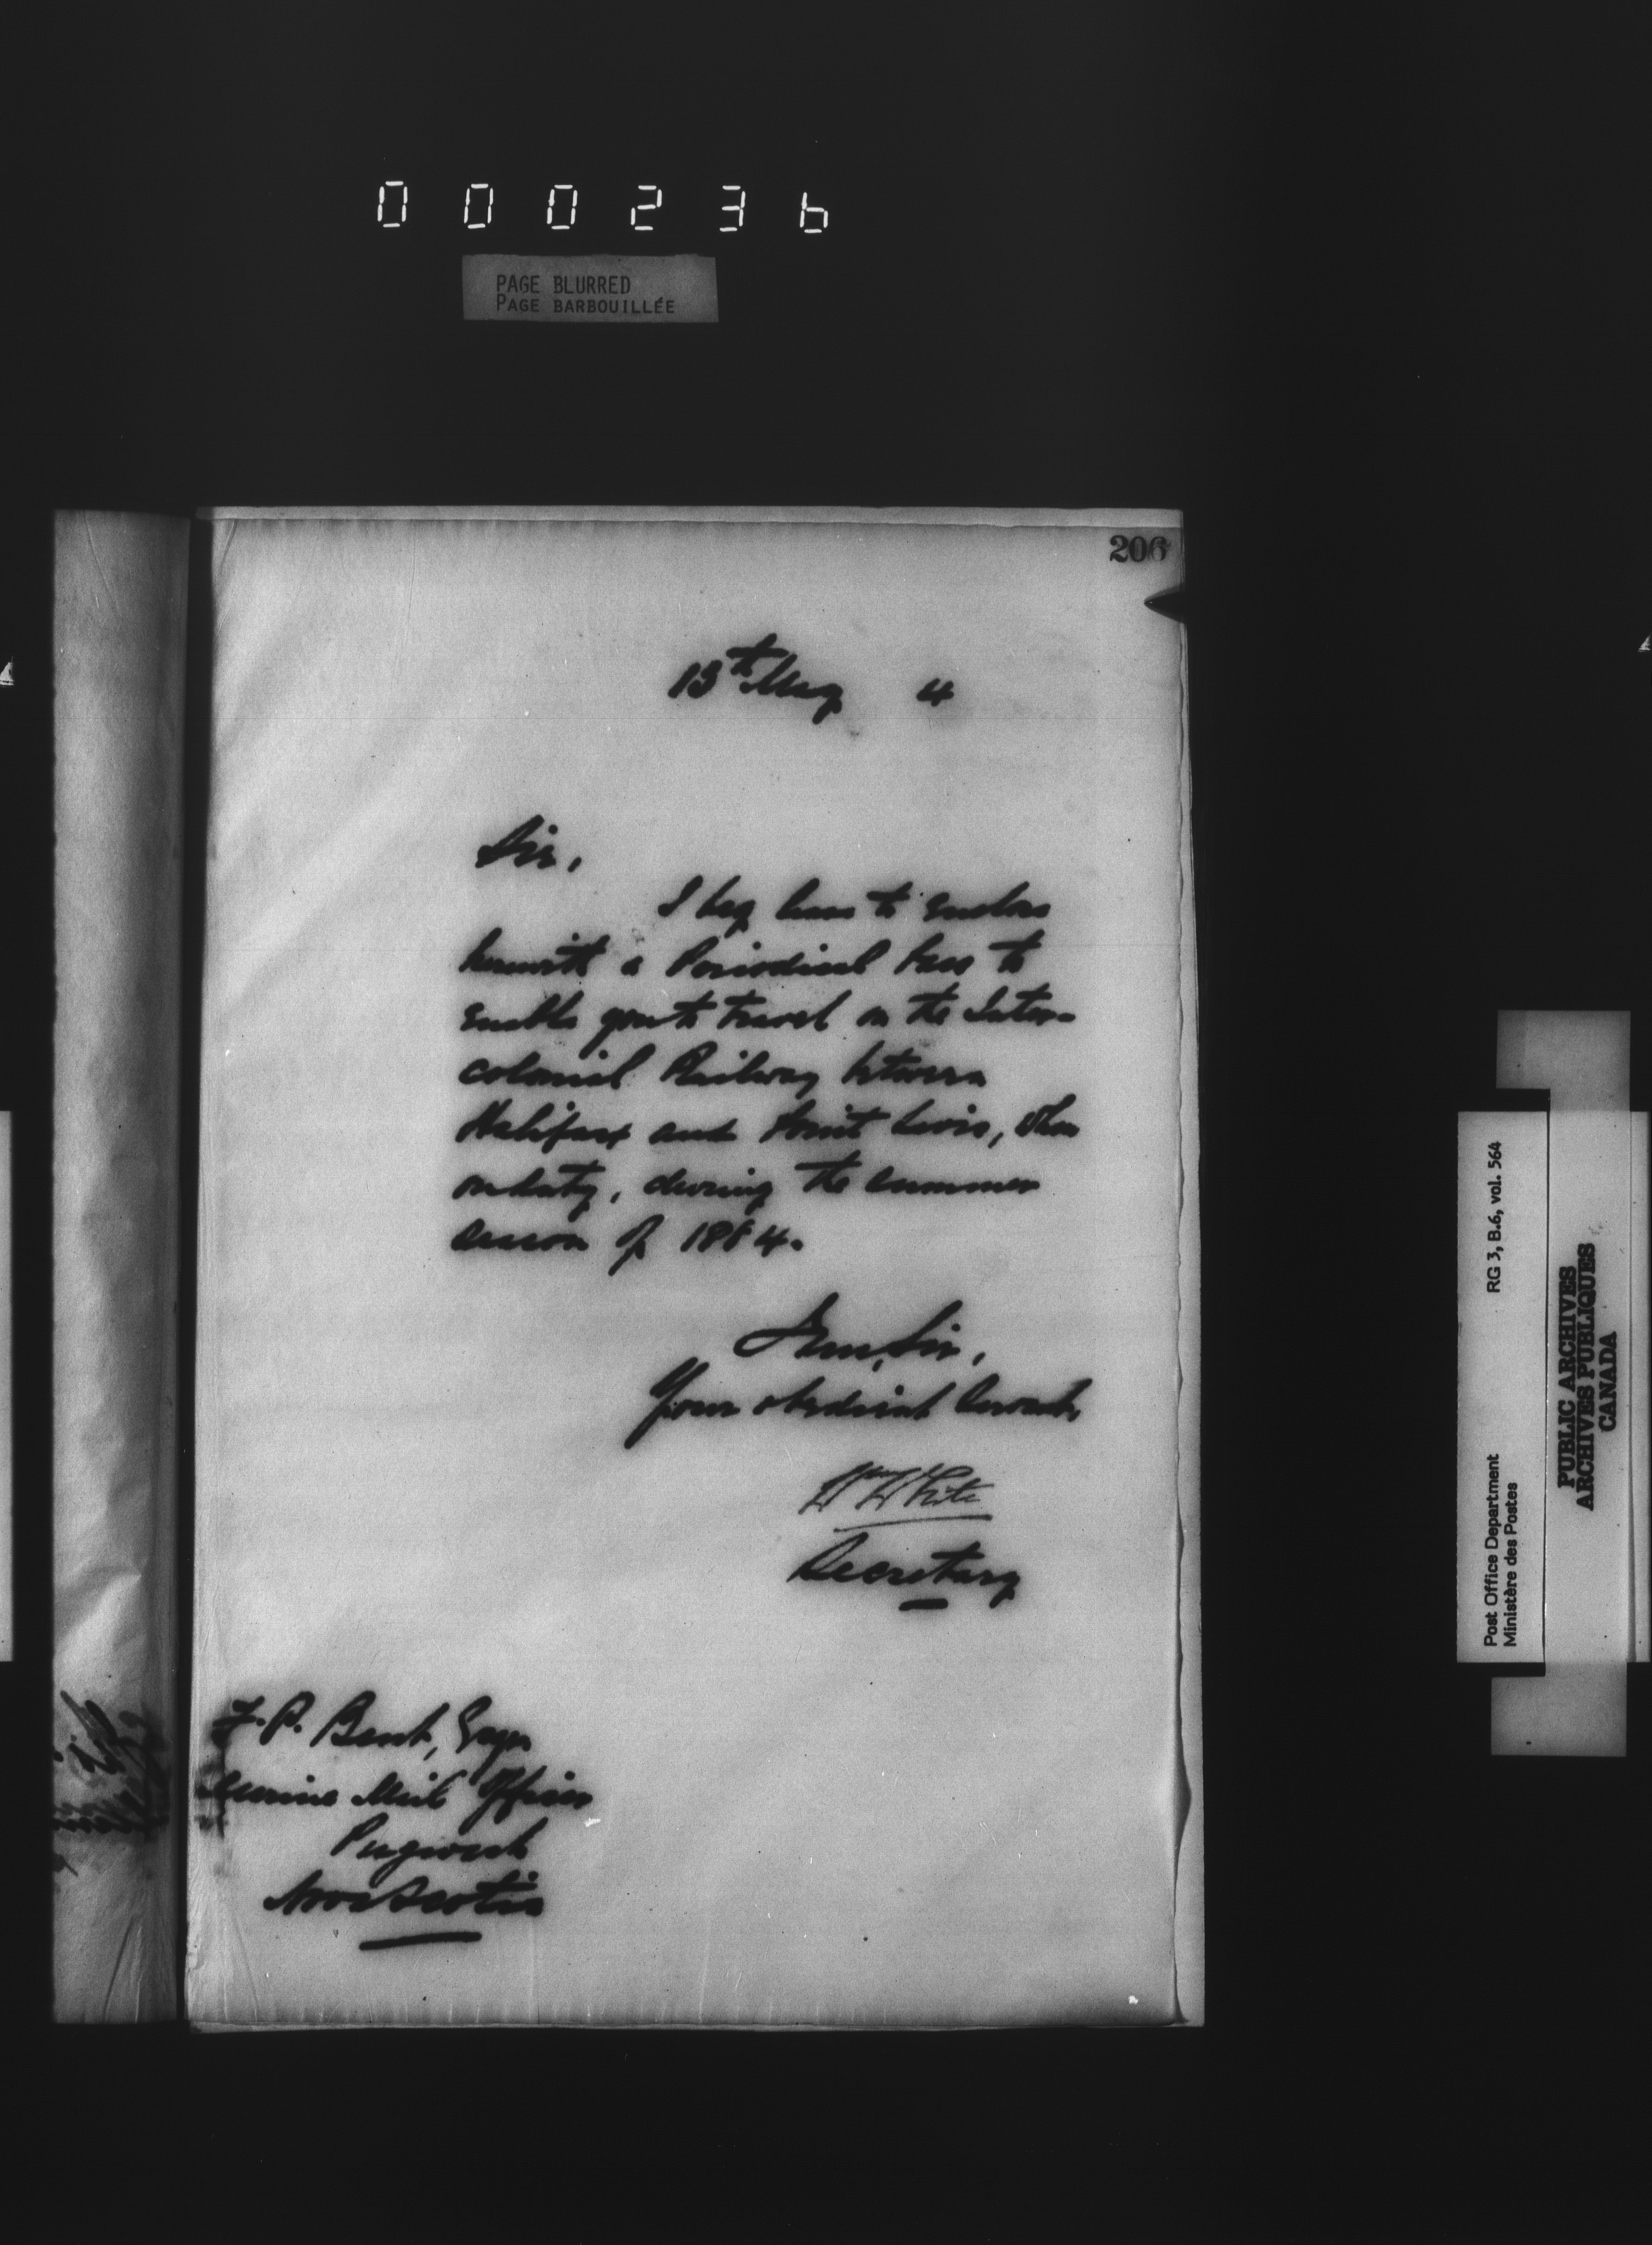 000236
PAGE BLURRED
PAGE BARBOUILLÉE
206
13th May 4
Sir,
I beg leave to enclose
herewith a Periodical Pass to
enable you to travel on the Inter-
colonial Railway between
Halifax and Point Levis, when
on duty, during the summer
season of 1884.
I am, Sir,
Your obedient Servant,
Wm White
Secretary
F. P. Bent, Esqr
Marine Mail Officer
Pugwash
Nova Scotia
Post Office Department RG 3, B.6, vol. 564
Ministère des Postes
PUBLIC ARCHIVES
ARCHIVES PUBLIQUES
CANADA